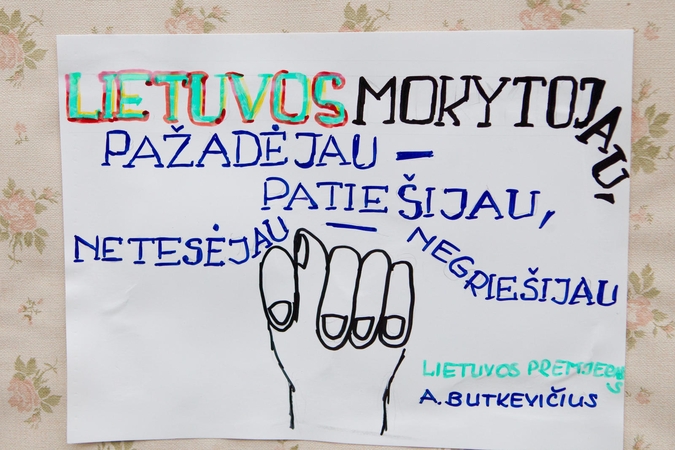 LIETUVOS MOKYTOJAU,
PAŽADĖJAU –
PATIEŠIJAU,
NETESĖJAU – NEGRIEŠIJAU
LIETUVOS PREMJERAS
A. BUTKEVIČIUS